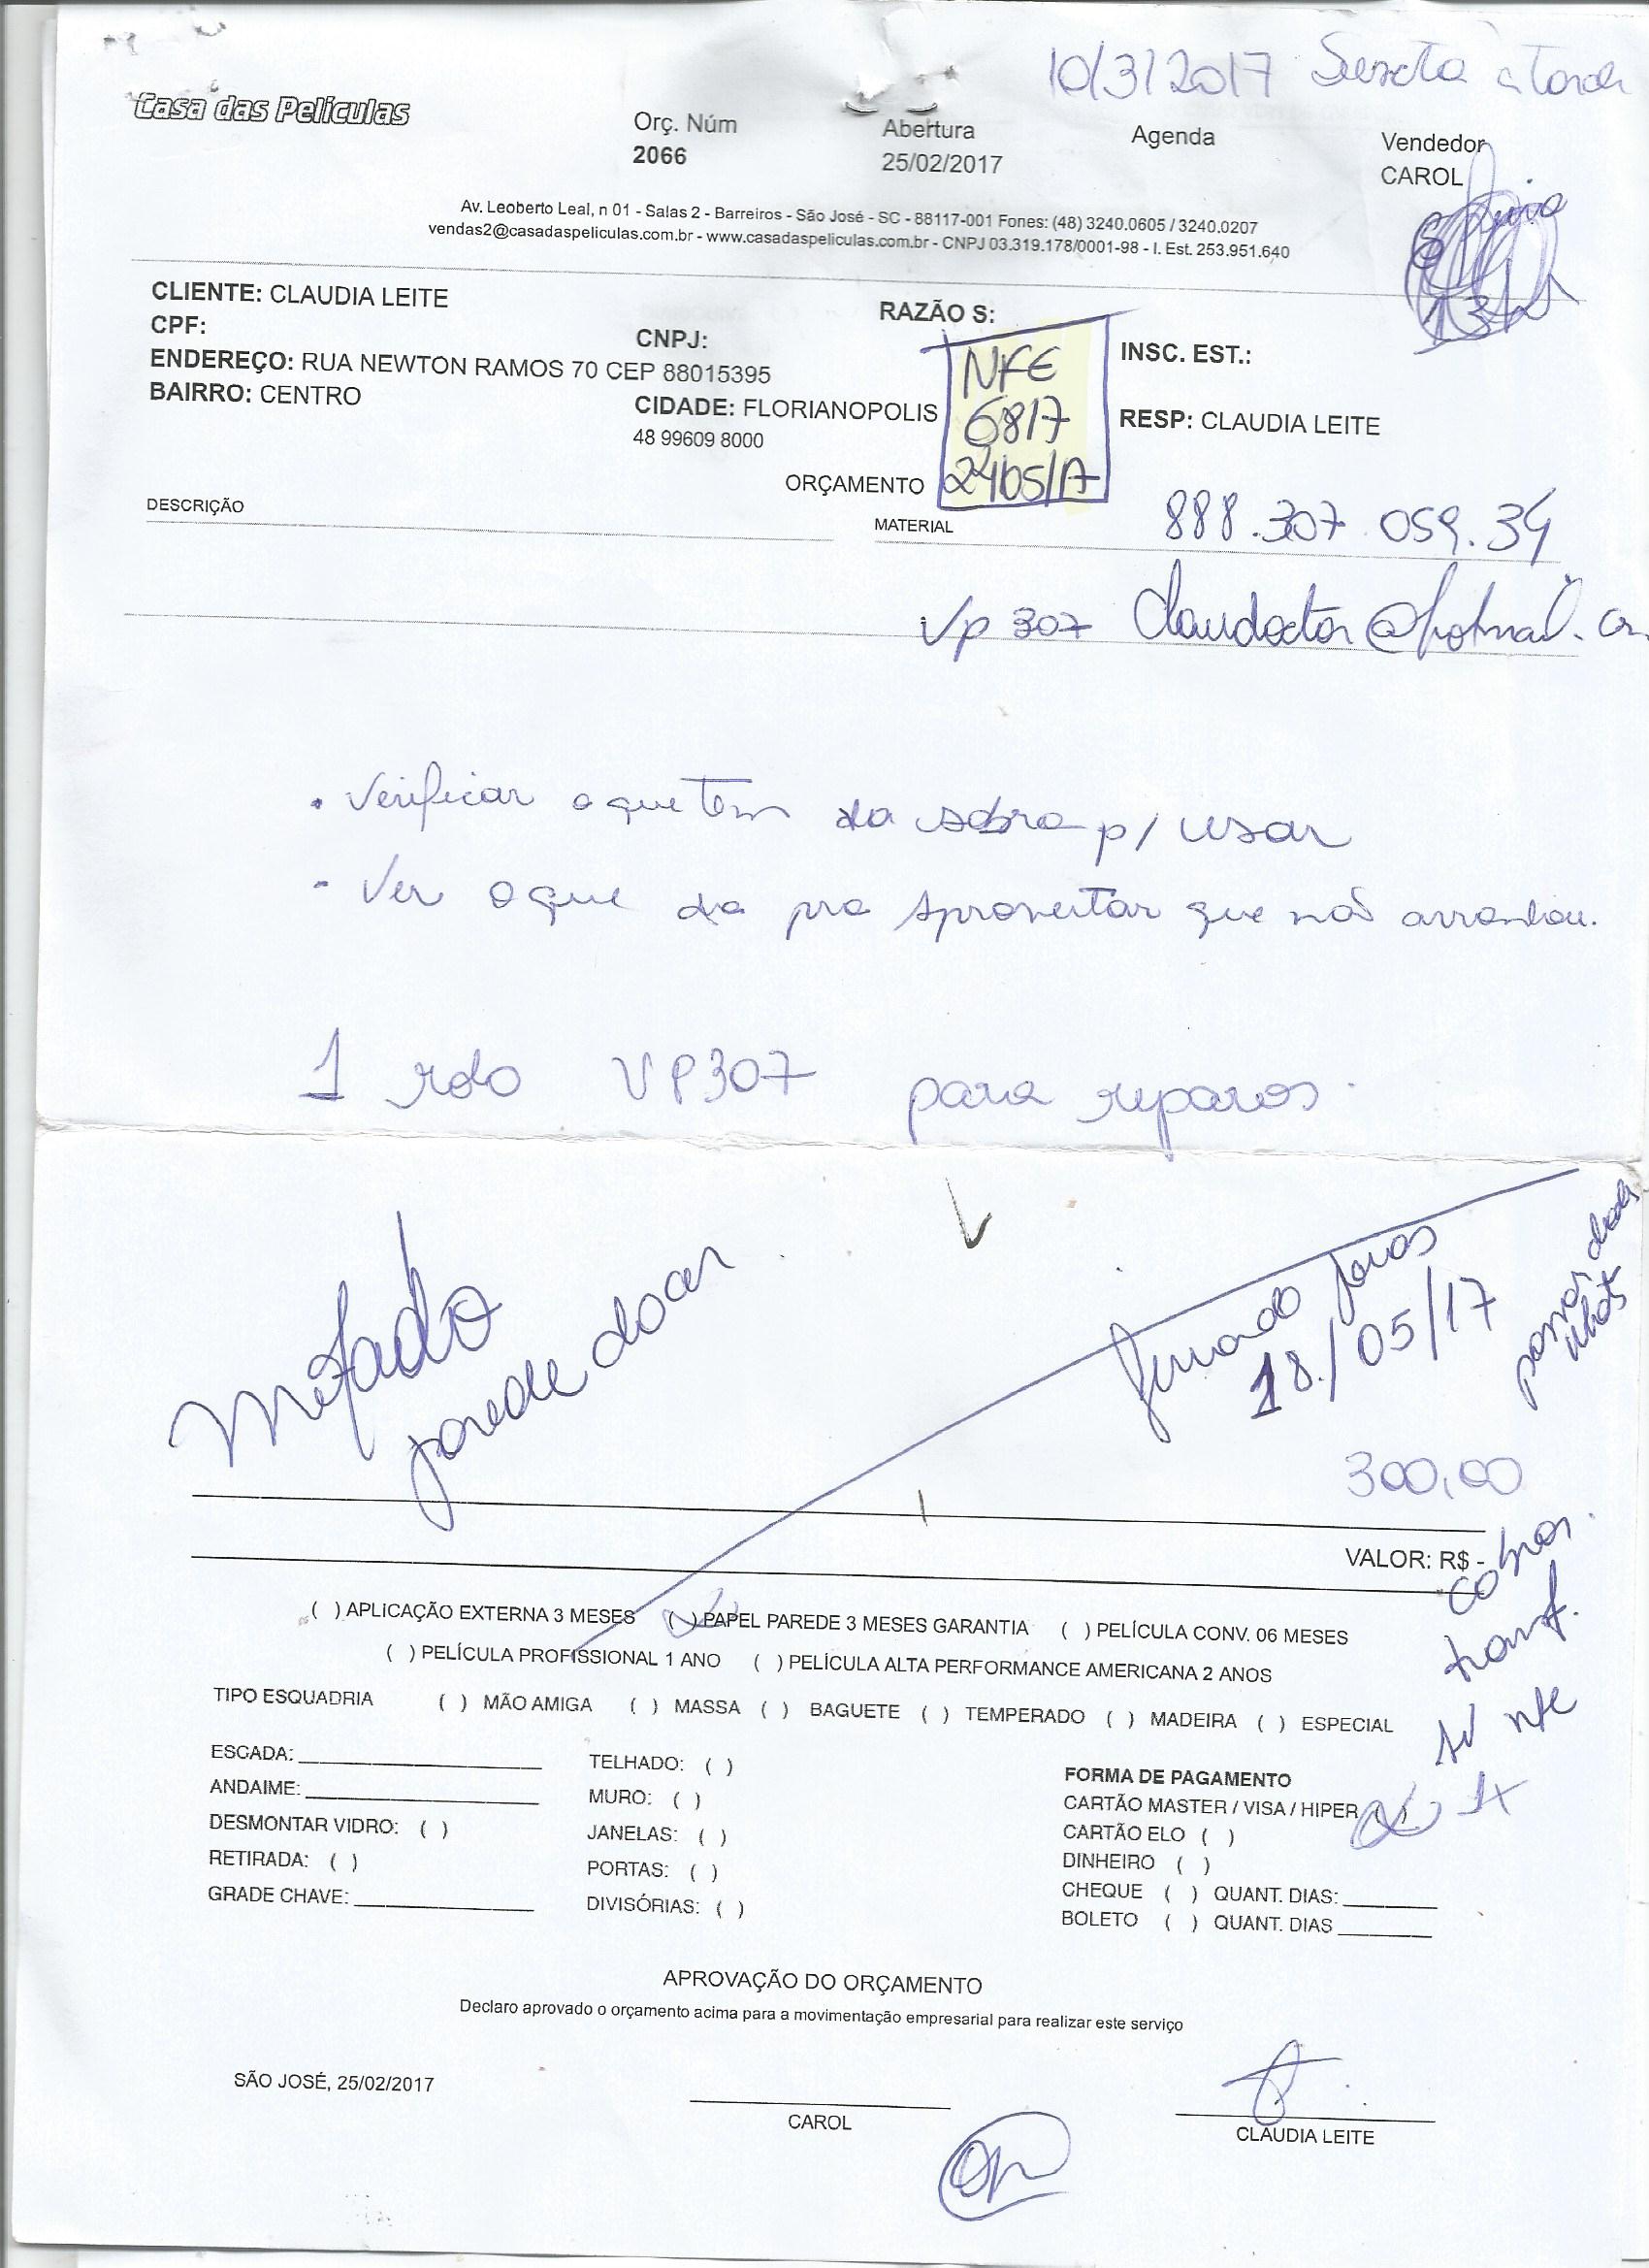 10/3/2017 Sexta a tarde
Casa das Películas
Orç. Núm
2066
Abertura
25/02/2017
Agenda
Vendedor
CAROL
Av. Leoberto Leal, n 01 - Salas 2 - Barreiros - São José - SC - 88117-001 Fones: (48) 3240.0605 / 3240.0207
vendas2@casadaspeliculas.com.br - www.casadaspeliculas.com.br - CNPJ 03.319.178/0001-98 - I. Est. 253.951.640
13h
CLIENTE: CLAUDIA LEITE
RAZÃO S:
CPF:
CNPJ:
INSC. EST.:
ENDEREÇO: RUA NEWTON RAMOS 70 CEP 88015395
BAIRRO: CENTRO
CIDADE: FLORIANOPOLIS
RESP: CLAUDIA LEITE
48 99609 8000
NFE
6817
2405/A
ORÇAMENTO
DESCRIÇÃO
MATERIAL
888.307.059.34
Vp 307 Claudoctor@hotmail.
• Verificar o que tem da sobra p/ usar
- Ver o que da pra aproveitar que não arranhou.
1 rolo VP307 para reparos.
parede
18/05/17
passar
300,00
VALOR: R$ -
cobrar.
transf.
s/ nfe
( ) APLICAÇÃO EXTERNA 3 MESES ( ) PAPEL PAREDE 3 MESES GARANTIA ( ) PELÍCULA CONV. 06 MESES
( ) PELÍCULA PROFISSIONAL 1 ANO ( ) PELÍCULA ALTA PERFORMANCE AMERICANA 2 ANOS
TIPO ESQUADRIA ( ) MÃO AMIGA ( ) MASSA ( ) BAGUETE ( ) TEMPERADO ( ) MADEIRA ( ) ESPECIAL
ESCADA:
ANDAIME:
DESMONTAR VIDRO: ( )
RETIRADA: ( )
GRADE CHAVE:
TELHADO: ( )
MURO: ( )
JANELAS: ( )
PORTAS: ( )
DIVISÓRIAS: ( )
FORMA DE PAGAMENTO
CARTÃO MASTER / VISA / HIPER ( ) 1x
CARTÃO ELO ( )
DINHEIRO ( )
CHEQUE ( ) QUANT. DIAS:
BOLETO ( ) QUANT. DIAS
APROVAÇÃO DO ORÇAMENTO
Declaro aprovado o orçamento acima para a movimentação empresarial para realizar este serviço
SÃO JOSÉ, 25/02/2017
CAROL
CLAUDIA LEITE